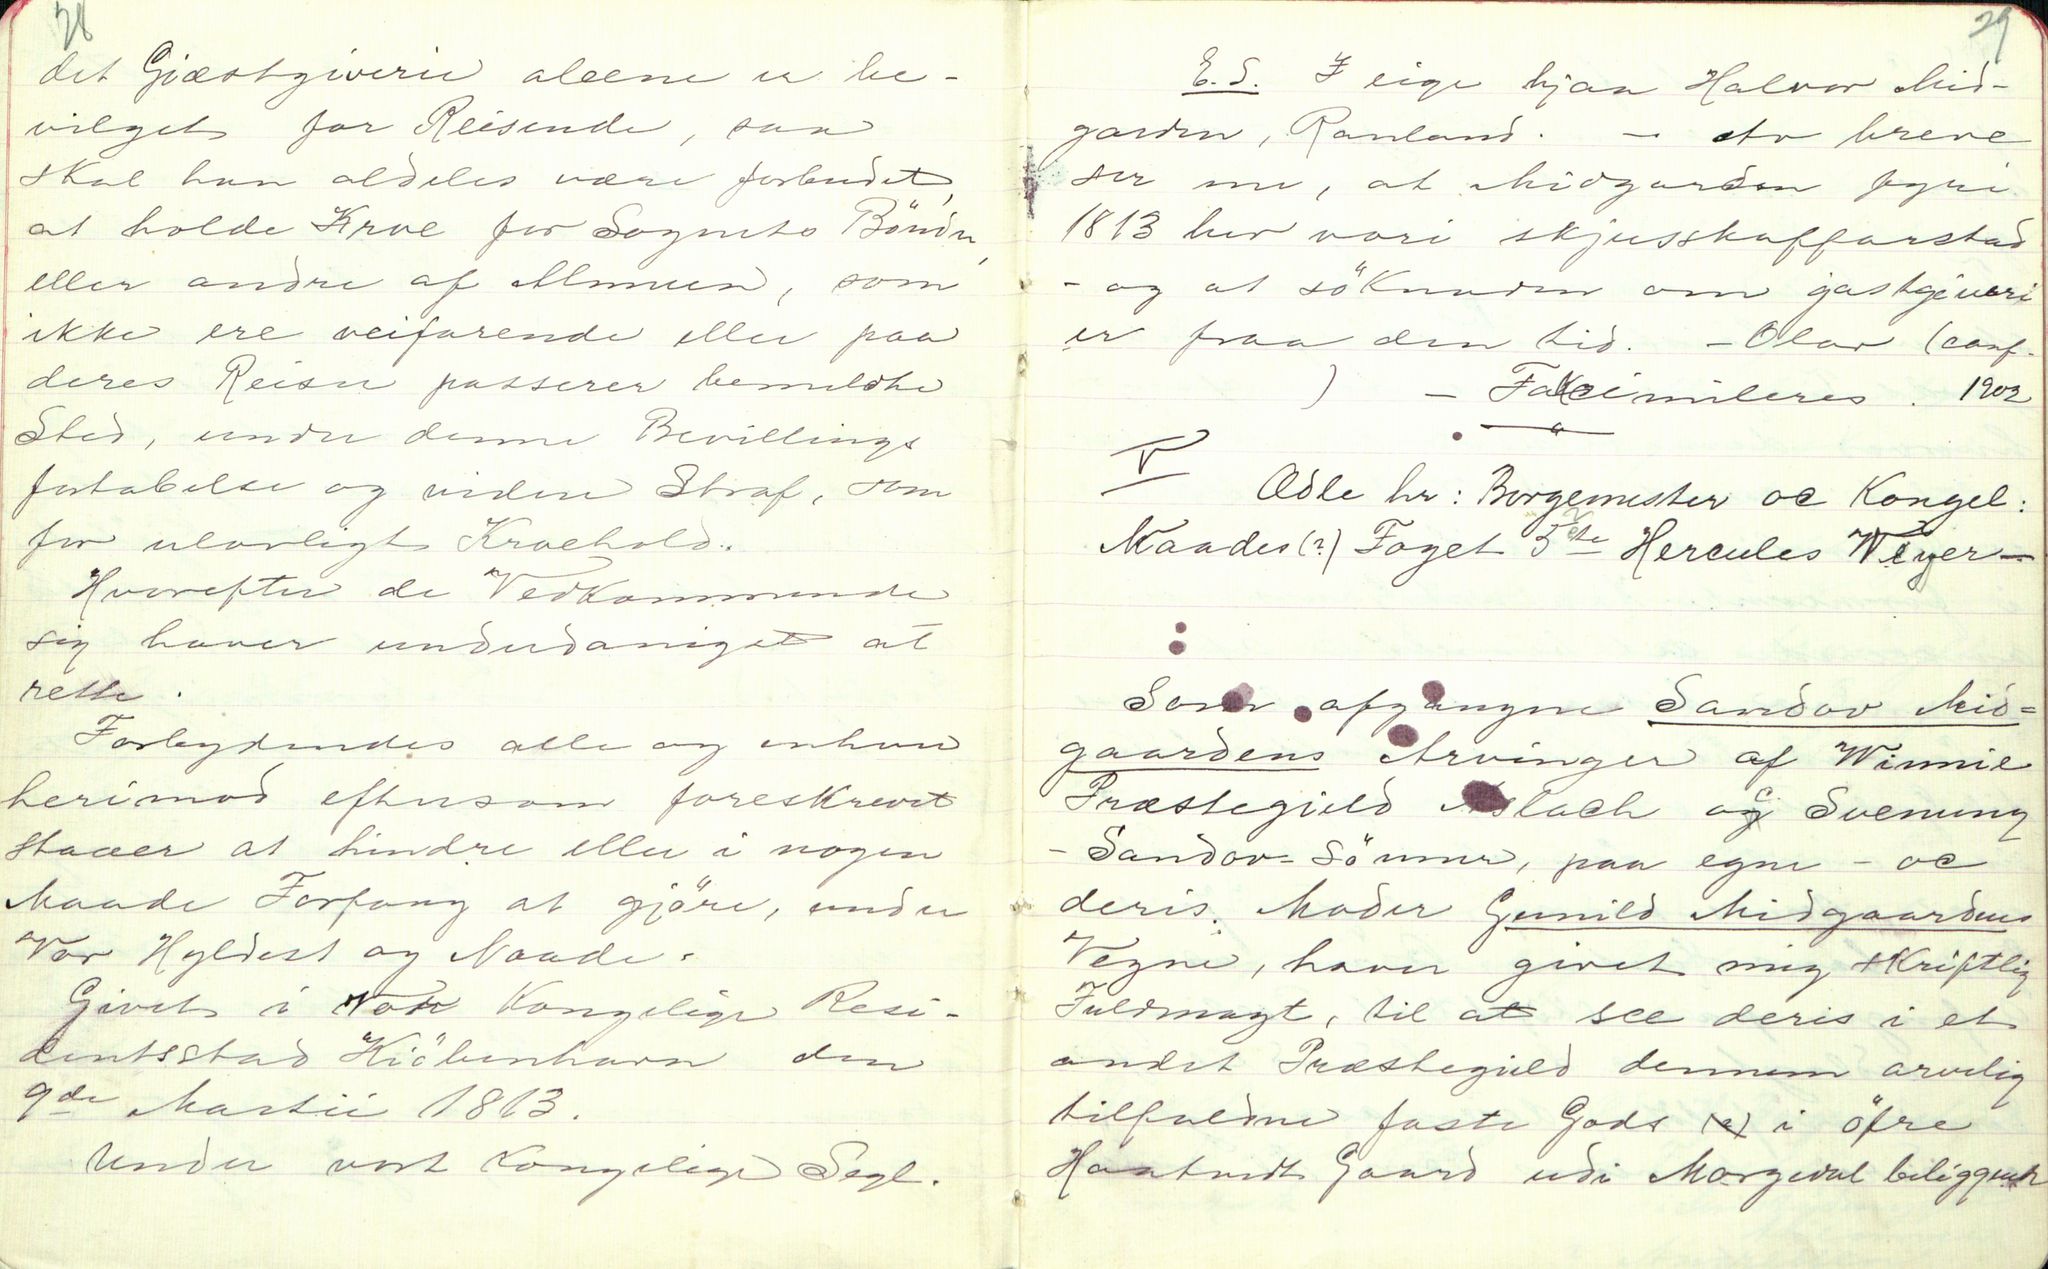 28
det Gjæstgiverie aleene er be-
vilget for Reisende, saa
skal han aldeles være forbudet,
at holde Kroe for Sognets Bönder,
eller andre af Almuen, som
ikke ere veifarende eller paa
deres Reiser passerer bemeldte
Sted, under denne Bevillings
fortabelse og videre Straf, som
for ulovligt Kroehold.
Hvorefter de Vedkommende
sig haver underdanigst at
rette.
Forbydendes alle og enhver
herimod eftersom foreskrevet
staaer at hindre eller i nogen
Maade Forfang at gjöre, under
Vor Hyldest og Naade.
Givet i Vor Kongelige Resi-
dentsstad Kiöbenhavn den
9de Martii 1813.
Under vort Kongelige Segl.
29
E.S. I eige hjaa Halvor Mid-
garden, Rauland. - Av breve
ser me, at Midgarden fyri
1813 hev vori skjusskaffarstad
- og at söknaden om gastgiveri
er fraa den tid. - Olav (conf.
) - Faksimileres. 1902
V
Ædle hr: Borgemester oc Kongel:
Naades(?) Foget 5te Hercules Weyer-
Som afgangne Sandov Mid-
gaardens Arvinger af Winnie
Præstegield Aslach oc Svenung
- Sandov-Sönner, paa egne - oc
deris Moder Gunild Midgaardens
Vegne, haver givet mig skriftlig
Fuldmagt, til at see deris i et
andet Præstegield dennem arvelig
tilfaldne faste Gods (?) i öfre
Haatvedt Gaard udi Morgedal beliggende